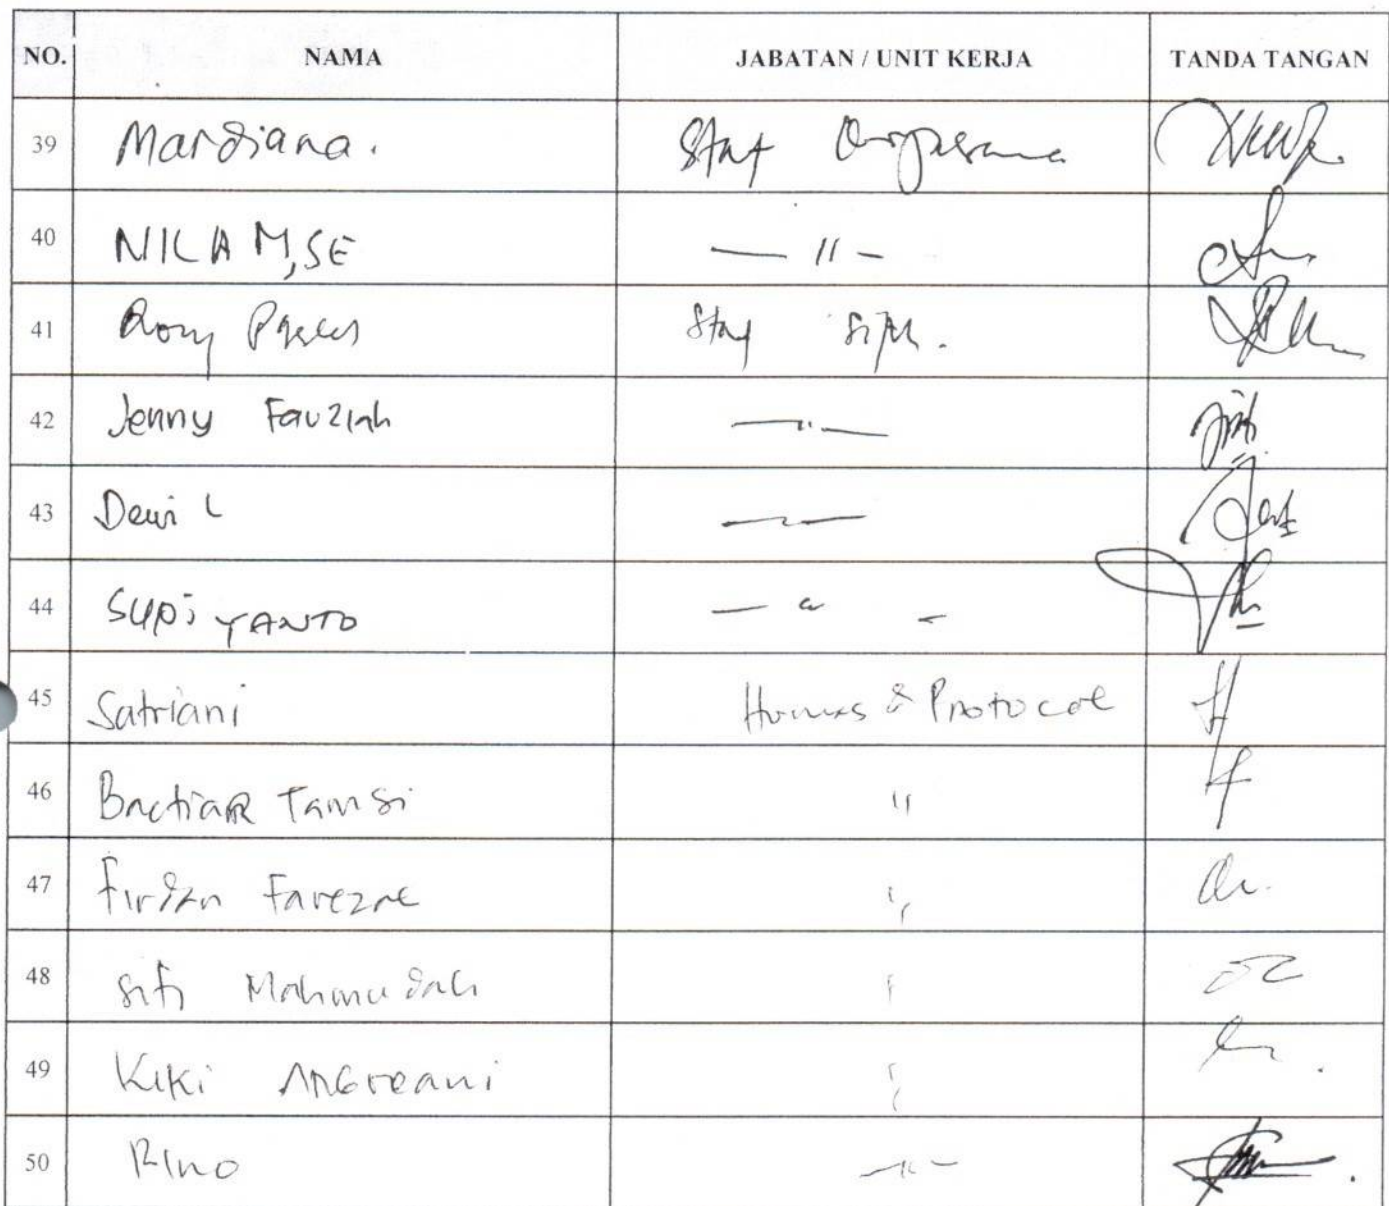 NO. NAMA JABATAN / UNIT KERJA TANDA TANGAN
39 Mardiana. Staf
40 NILA M, SE — 11 -
41 Rony Staf
42 Jenny Fauziah — 11 —
43 Dewi L
44 SUPiYANTO
45 Satriani Humas & Protocol
46 Bactiar Tamsi 11
47 Firdan Farezae
48 Siti Mahmudah
49 KiKi ANGreani
50 Rino - 11 -